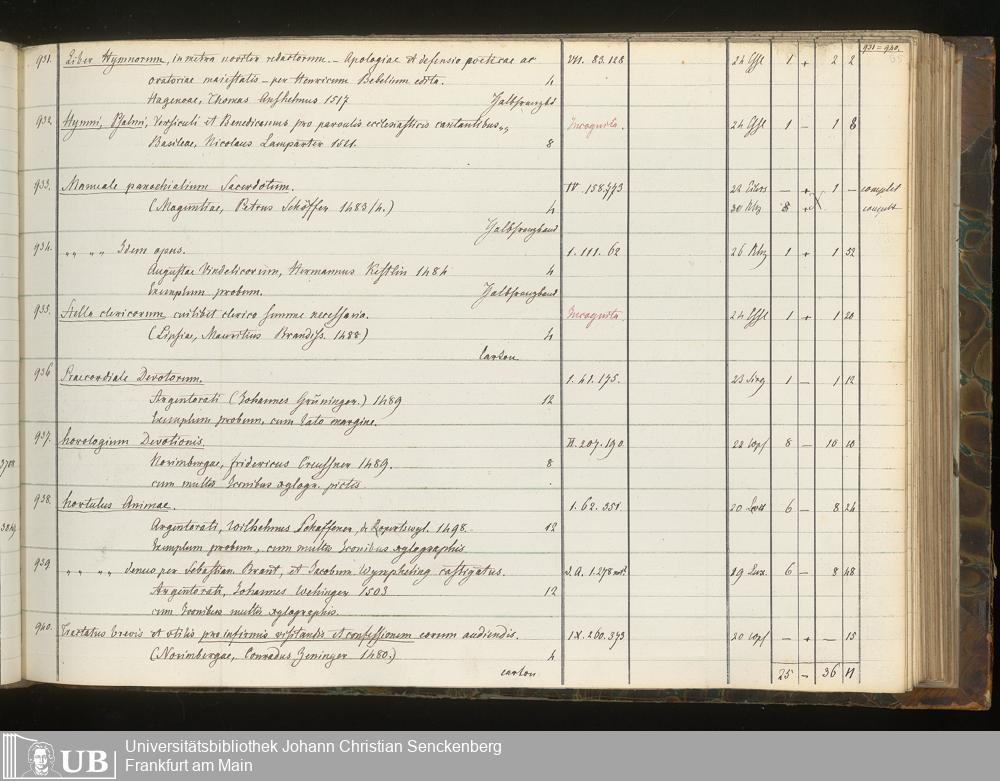 931=940.
931. Liber Hymnorum, in metra noviter redactorum. – Apologiae et defensio poëticae ac VII. 83. 128 24 1 + 2 2
oratoriae maiestatis – per Henricum Bebelium edita. 4
Hagenoae, Thomas Anshelmus 1517 Halbfranzbd
932. Hymni, Psalmi, Versiculi et Benedicamus pro parvulis ecclesiasticis cantantibus Incognita. 24 1 – 1 8
Basileae, Nicolaus Lamparter 1521. 8
933. Manuale parochialium Sacerdotum. IV. 158. 793 – + 1 – complet
(Maguntiae, Petrus Schöffer 1483/4.) 4 30 8
Halbfranzband
934. „ „ „ „ Idem opus. 1. 111. 62 26 1 + 1 52
Augustae Vindelicorum, Hermannus Kestlin 1484 4
Exemplum probum. Halbfranzband
935. Stella clericorum cuilibet clerico summe necessaria. Incognita 24 1 + 1 20
(Lipsiae, Mauritius Brandiss. 1488) 4
Carton
936 Praecordiale Devotorum. 1. 41. 175. 23 1 – 1 12
Argentorati (Johannes Grüninger.) 1489 12
Exemplum probum, cum lato margine.
937. Horologium Devotionis. II. 207. 190 22 8 – 10 10
3708
Norimbergae, fridericus Creussner 1489. 8
cum multis Iconibus xylogr. pictis
938. hortulus Animae. 1. 62. 351 20 6 – 8 24
Argentorati, Wilhelmus Schaffener, de Ropertswyl. 1498. 12
Exemplum probum, cum multis Iconibus xylographis
939. „ „ „ „ denuo per Sebastian. Brant, et Jacobum Wympheling castigatus. 19 6 – 8 48
Argentorati, Johannes Wehinger 1503 12
cum Iconibus multis xylographis.
940. Tractatus brevis et utilis pro infirmis visitandis et confessionem eorum audiendis. IX. 260. 393 20 – + – 15
(Norimbergae, Conradus Zeninger 1480.) 4
carton 25 – 36 11
UB
Universitätsbibliothek Johann Christian Senckenberg
Frankfurt am Main